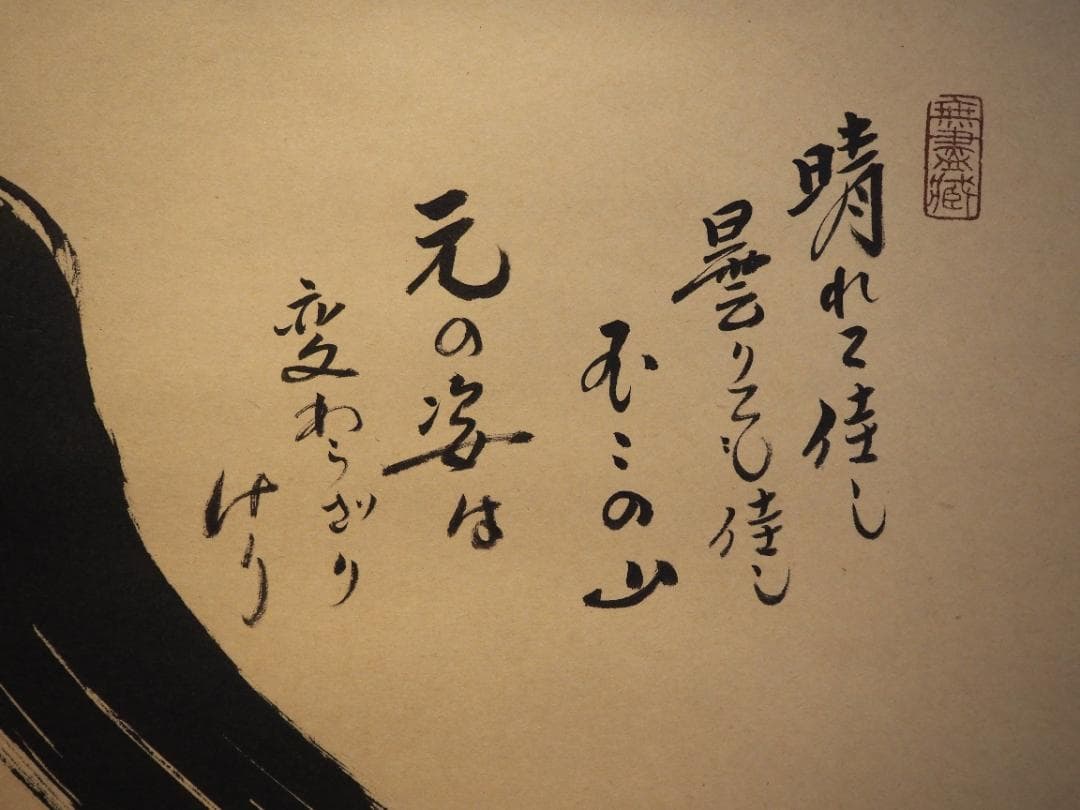 無盡藏
晴れて佳し
曇りても佳し
不二の山
元の姿は
変わらざり
けり